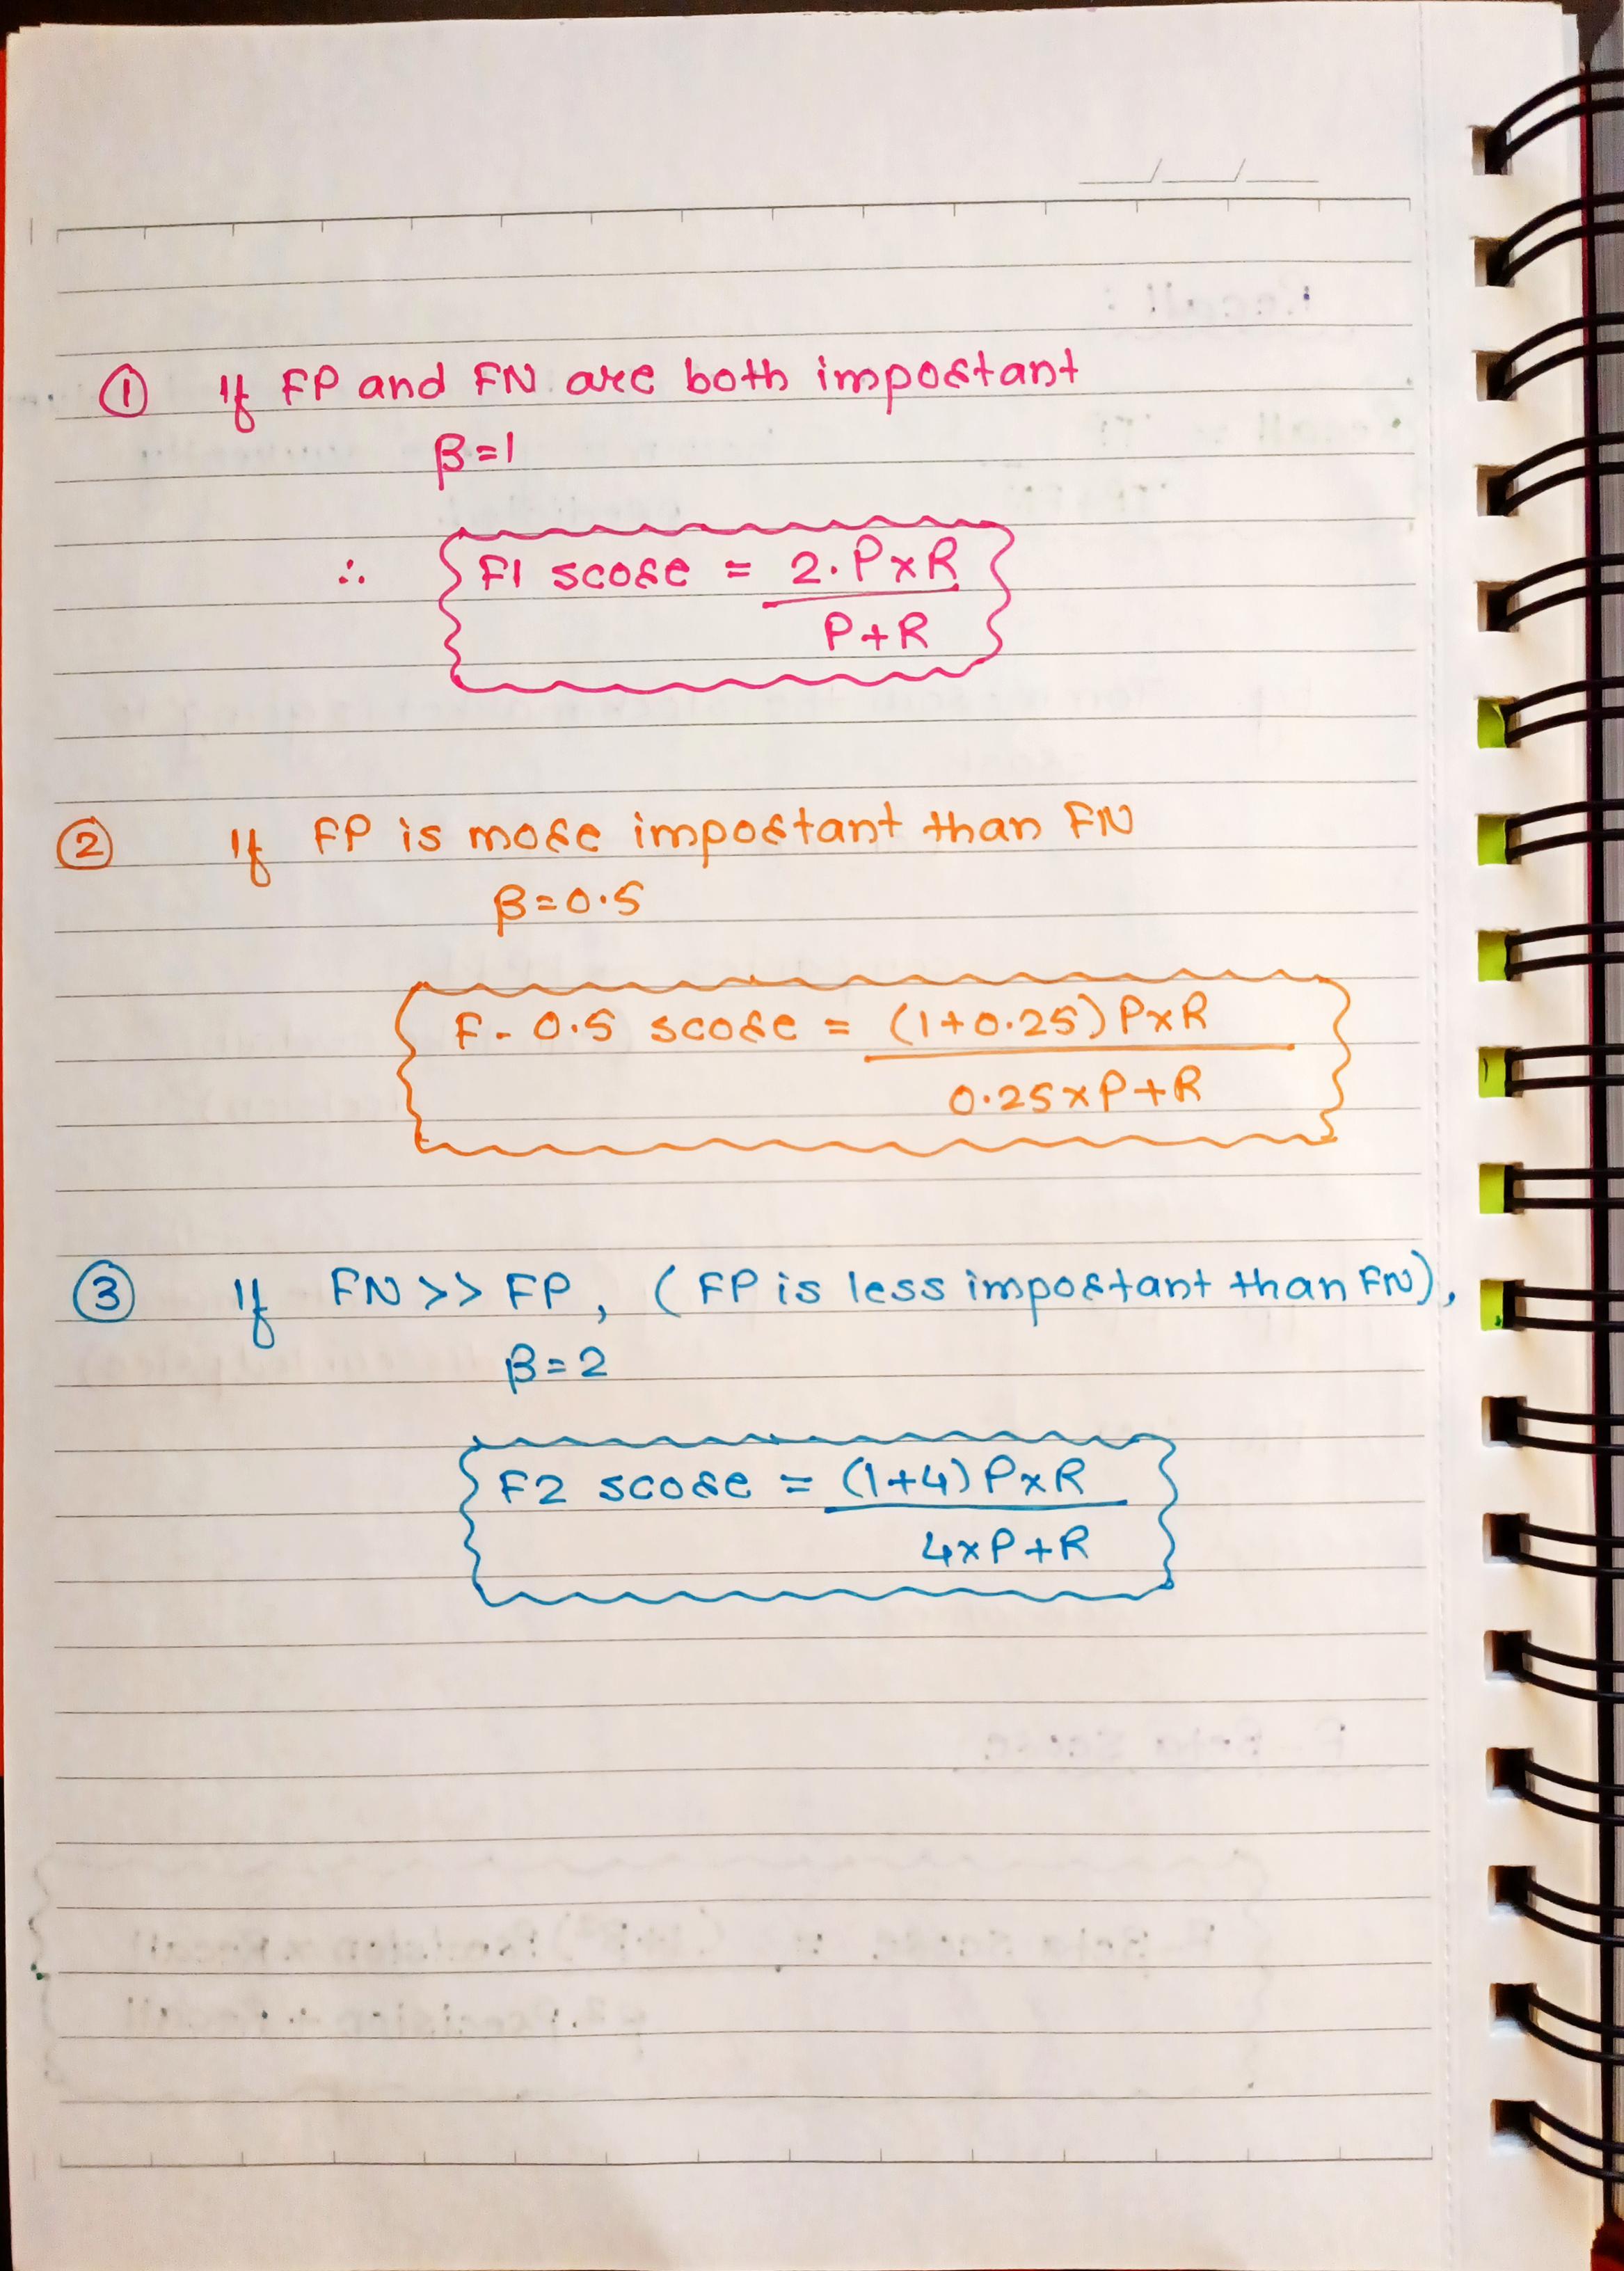 ① If FP and FN are both important
β=1
∴ F1 score = 2·P×R
P+R
② If FP is more important than FN
β=0.5
F-0.5 score = (1+0.25) P×R
0.25×P+R
③ If FN >> FP, (FP is less important than FN),
β=2
F2 score = (1+4) P×R
4×P+R